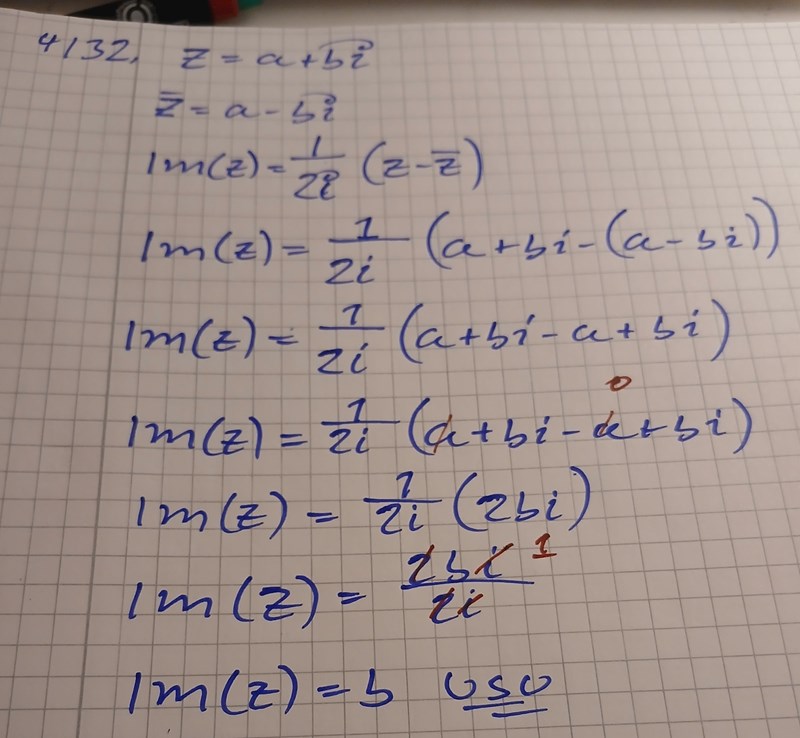 4132. z = a + bi
z̅ = a - bi
Im(z) = 1/2i (z - z̅)
Im(z) = 1/2i (a + bi - (a - bi))
Im(z) = 1/2i (a + bi - a + bi)
Im(z) = 1/2i (a + bi - a + bi) 0
Im(z) = 1/2i (2bi)
Im(z) = 2bi/2i 1
Im(z) = b VSV